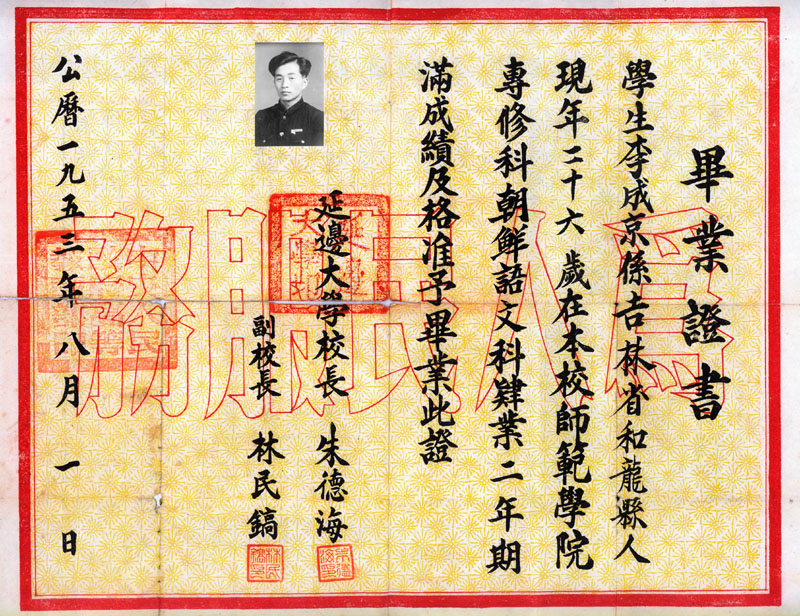 畢業證書
學生李成京係吉林省和龍縣人
現年二十六歲在本校師範學院
專修科朝鮮語文科肄業二年期
滿成績及格准予畢業此證
延邊大學校長 朱德海
副校長 林民鎬
公曆一九五三年八月一日
爲人民服務